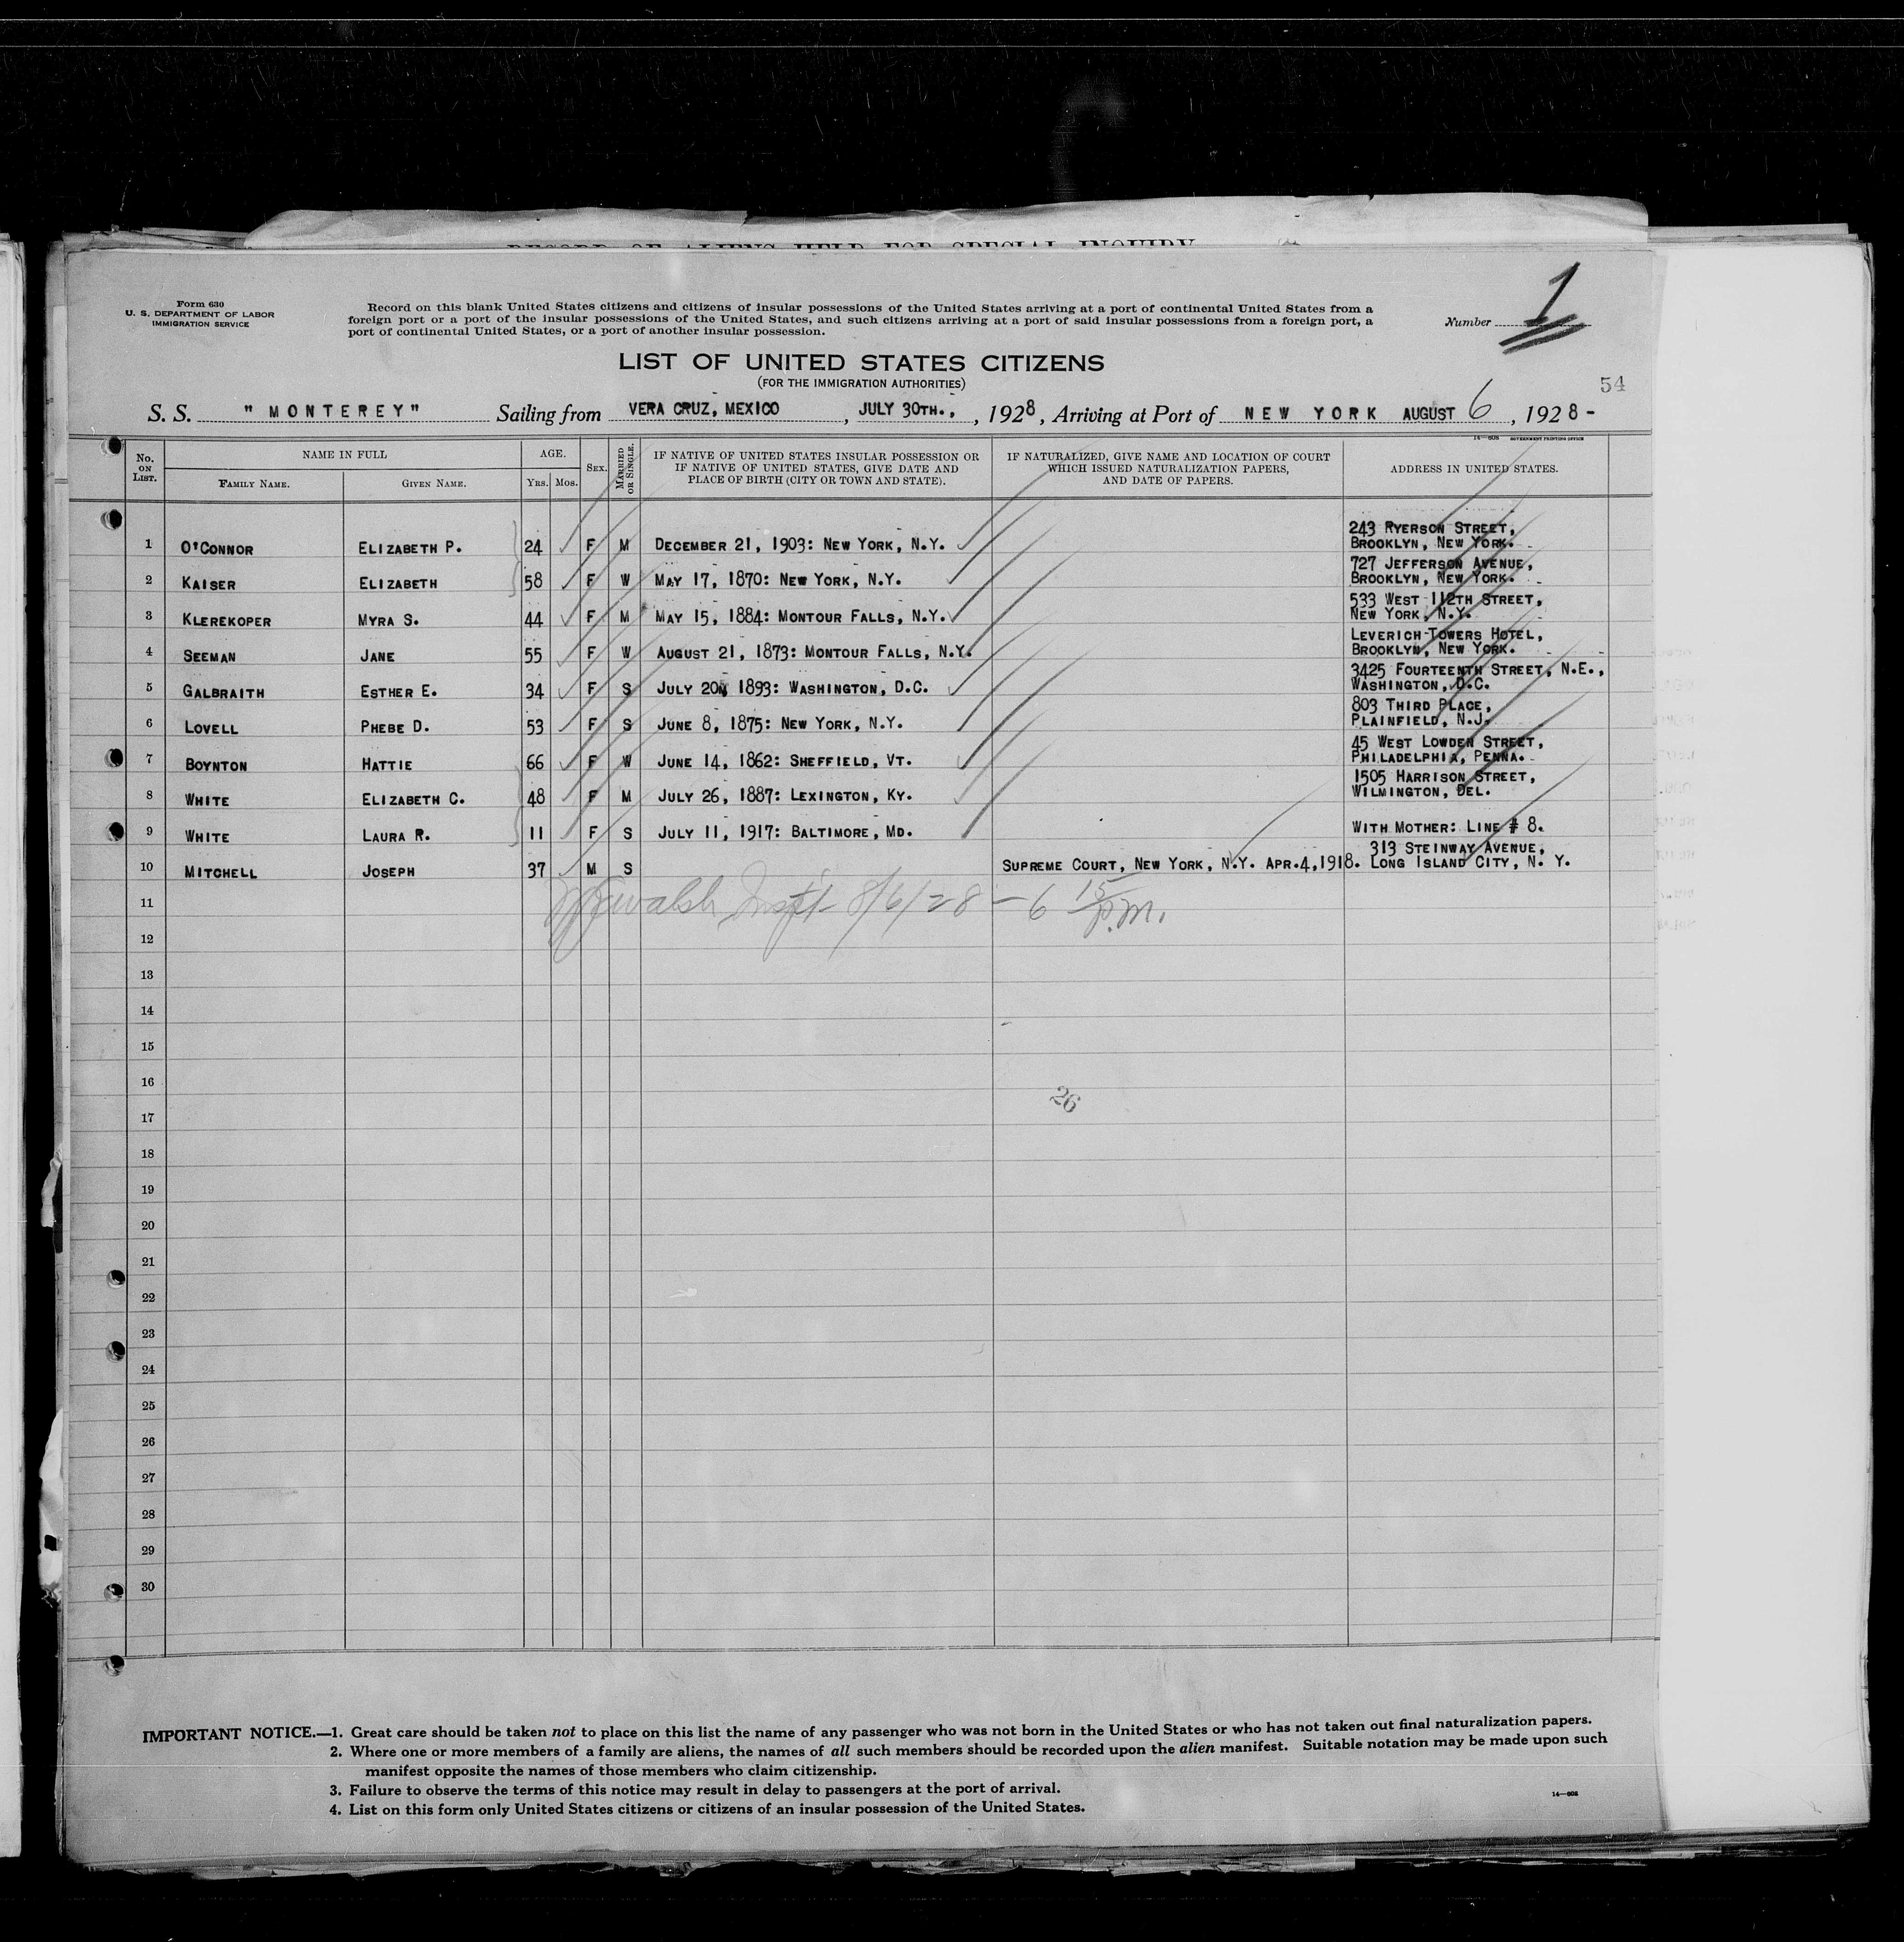 Form 630
U. S. DEPARTMENT OF LABOR
IMMIGRATION SERVICE
Record on this blank United States citizens and citizens of insular possessions of the United States arriving at a port of continental United States from a
foreign port or a port of the insular possessions of the United States, and such citizens arriving at a port of said insular possessions from a foreign port, a
port of continental United States, or a port of another insular possession.
Number 1
LIST OF UNITED STATES CITIZENS
(FOR THE IMMIGRATION AUTHORITIES)
54
S. S. "MONTEREY" Sailing from VERA CRUZ, MEXICO, JULY 30TH., 1928, Arriving at Port of NEW YORK AUGUST 6, 1928-
14—608 GOVERNMENT PRINTING OFFICE
No. ON LIST. NAME IN FULL FAMILY NAME. GIVEN NAME. AGE. YRS. MOS. SEX. MARRIED OR SINGLE. IF NATIVE OF UNITED STATES INSULAR POSSESSION OR IF NATIVE OF UNITED STATES, GIVE DATE AND PLACE OF BIRTH (CITY OR TOWN AND STATE). IF NATURALIZED, GIVE NAME AND LOCATION OF COURT WHICH ISSUED NATURALIZATION PAPERS, AND DATE OF PAPERS. ADDRESS IN UNITED STATES.
1 O'CONNOR ELIZABETH P. 24 F M DECEMBER 21, 1903: NEW YORK, N.Y. 243 RYERSON STREET, BROOKLYN, NEW YORK.
2 KAISER ELIZABETH 58 F W MAY 17, 1870: NEW YORK, N.Y. 727 JEFFERSON AVENUE, BROOKLYN, NEW YORK.
3 KLEREKOPER MYRA S. 44 F M MAY 15, 1884: MONTOUR FALLS, N.Y. 533 WEST 112TH STREET, NEW YORK, N.Y.
4 SEEMAN JANE 55 F W AUGUST 21, 1873: MONTOUR FALLS, N.Y. LEVERICH-TOWERS HOTEL, BROOKLYN, NEW YORK.
5 GALBRAITH ESTHER E. 34 F S JULY 20, 1893: WASHINGTON, D.C. 3425 FOURTEENTH STREET, N.E., WASHINGTON, D.C.
6 LOVELL PHEBE D. 53 F S JUNE 8, 1875: NEW YORK, N.Y. 803 THIRD PLACE, PLAINFIELD, N.J.
7 BOYNTON HATTIE 66 F W JUNE 14, 1862: SHEFFIELD, VT. 45 WEST LOWDEN STREET, PHILADELPHIA, PENNA.
8 WHITE ELIZABETH C. 48 F M JULY 26, 1887: LEXINGTON, KY. 1505 HARRISON STREET, WILMINGTON, DEL.
9 WHITE LAURA R. 11 F S JULY 11, 1917: BALTIMORE, MD. WITH MOTHER: LINE # 8.
10 MITCHELL JOSEPH 37 M S SUPREME COURT, NEW YORK, N.Y. APR.4,1918. 313 STEINWAY AVENUE, LONG ISLAND CITY, N. Y.
11 walsh 8/6/28 - 6 15 P.M.
12
13
14
15
16
26
17
18
19
20
21
22
23
24
25
26
27
28
29
30
IMPORTANT NOTICE.—1. Great care should be taken not to place on this list the name of any passenger who was not born in the United States or who has not taken out final naturalization papers.
2. Where one or more members of a family are aliens, the names of all such members should be recorded upon the alien manifest. Suitable notation may be made upon such
manifest opposite the names of those members who claim citizenship.
3. Failure to observe the terms of this notice may result in delay to passengers at the port of arrival.
4. List on this form only United States citizens or citizens of an insular possession of the United States.
14—608